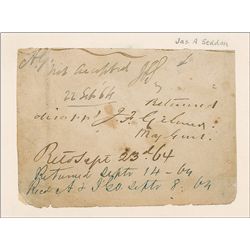 Jas A Seddon
not accepted
22 Sept 64
Returned
J. F. Gilmer
Maj Genl.
Recd Sept 23d 64
Returned Septr 14-64
Recd A & I GO Septr 8. 64